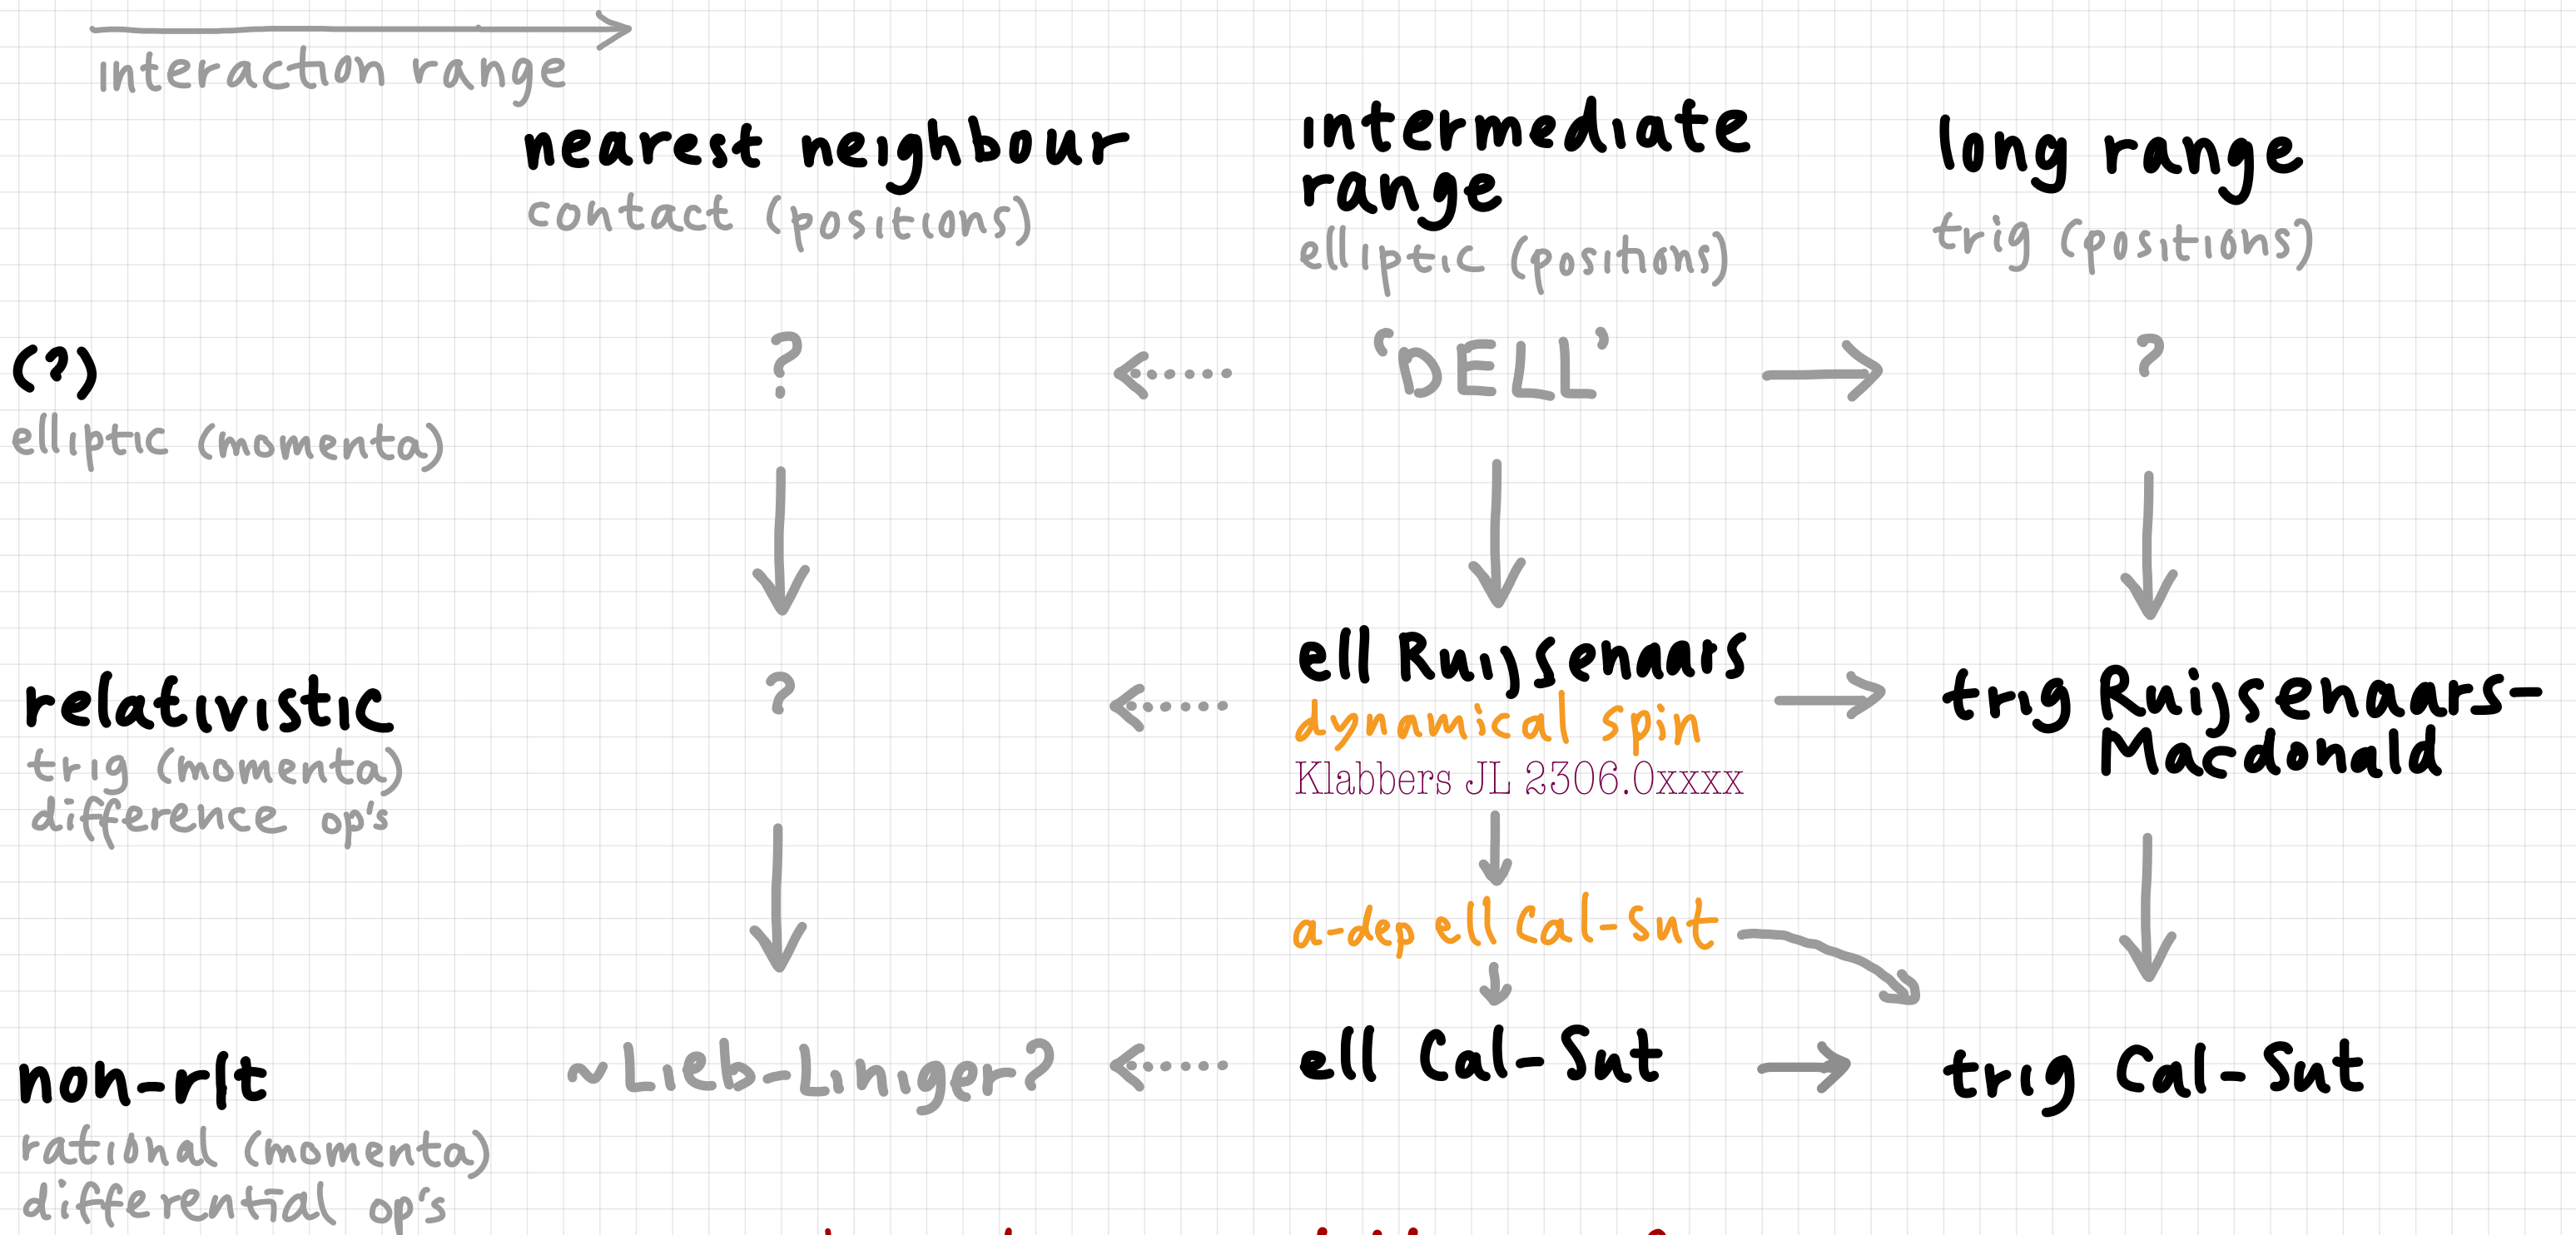 interaction range
nearest neighbour
contact (positions)
intermediate
range
elliptic (positions)
long range
trig (positions)
(?)
elliptic (momenta)
?
'DELL'
?
relativistic
trig (momenta)
difference op's
?
ell Ruijsenaars
dynamical spin
Klabbers JL 2306.0xxxx
trig Ruijsenaars-
Macdonald
a-dep ell Cal-Sut
non-rlt
rational (momenta)
differential op's
~Lieb-Liniger?
ell Cal-Sut
trig Cal-Sut